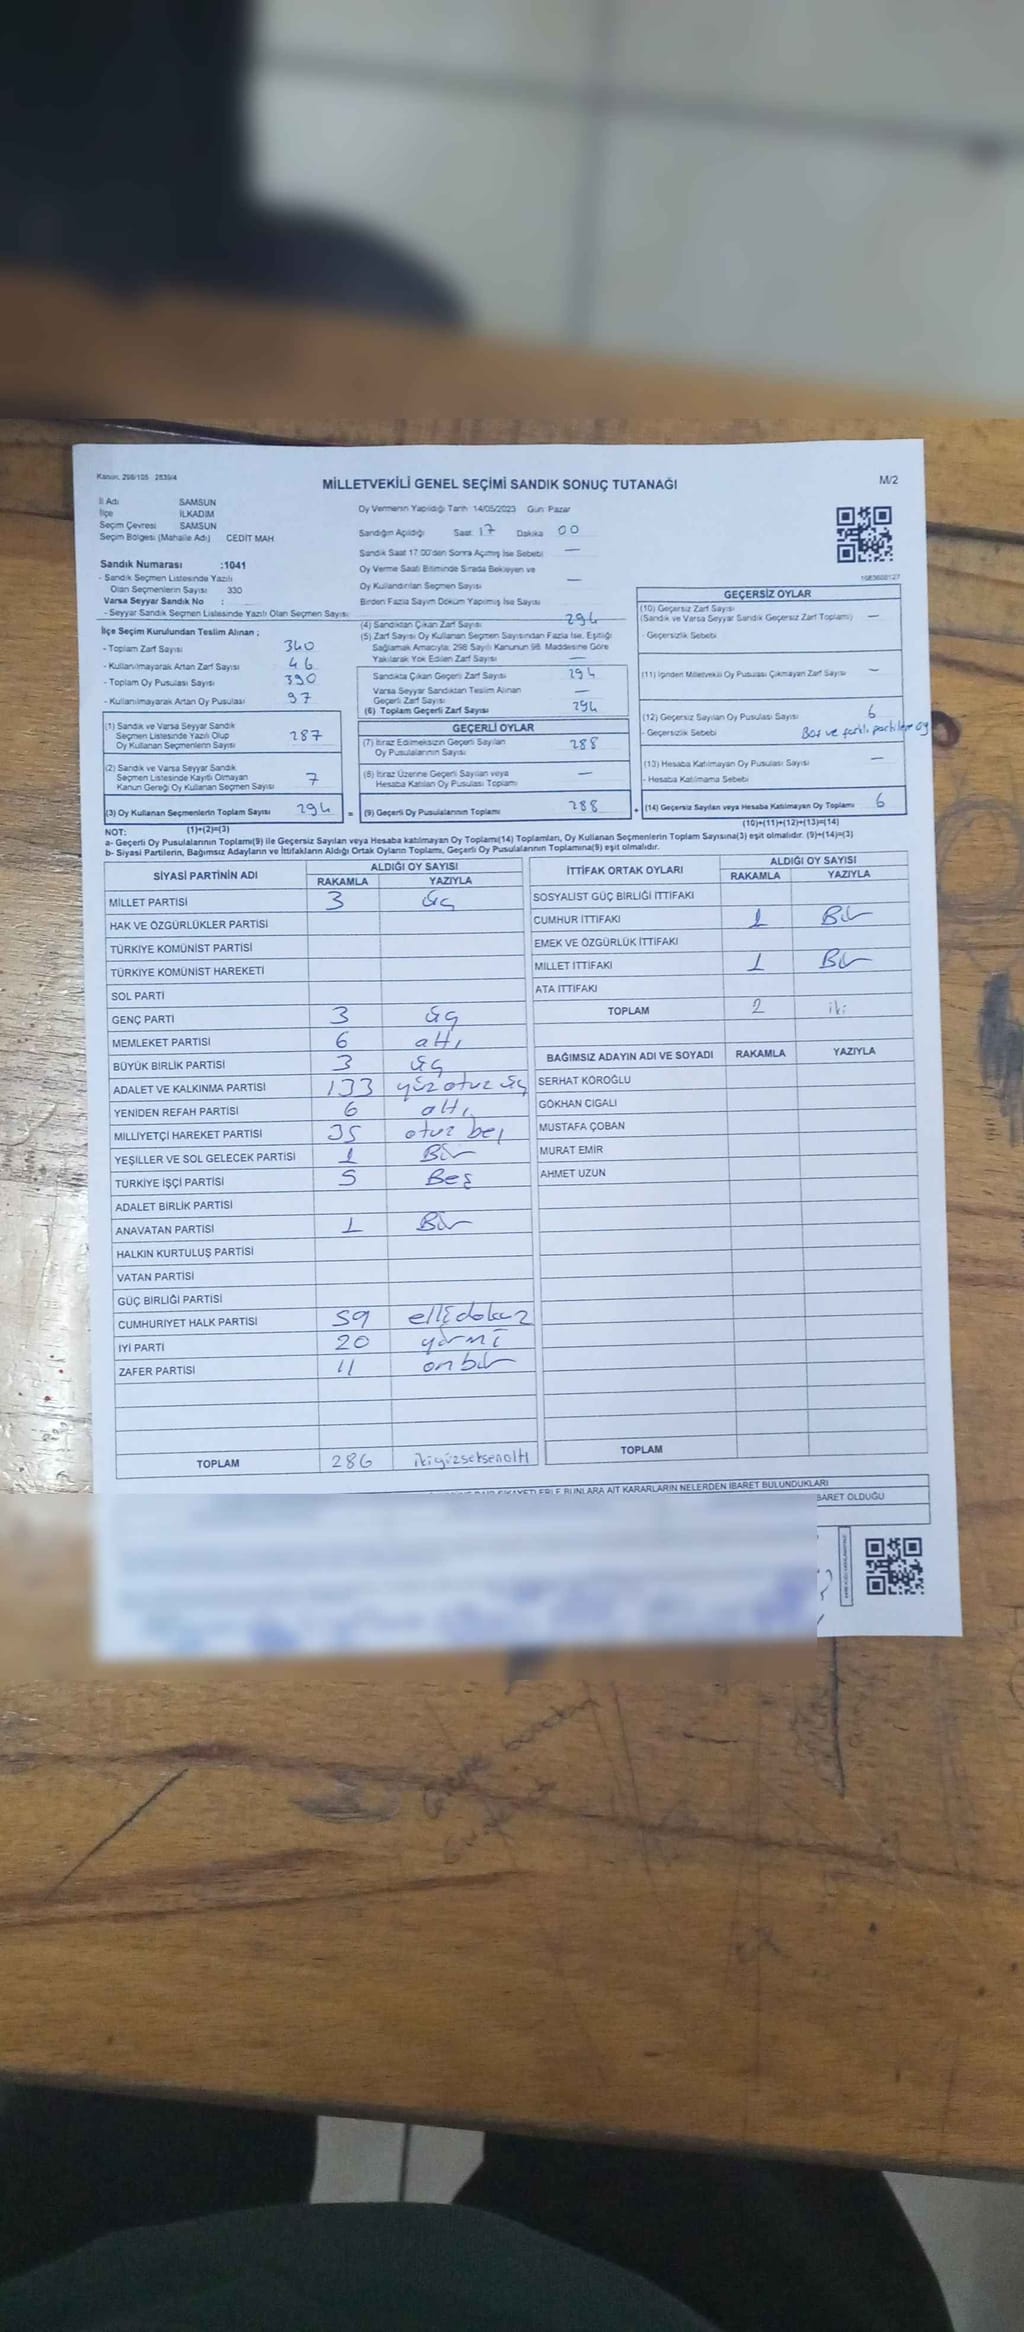 Kanun, 298/105 2839/4
MİLLETVEKİLİ GENEL SEÇİMİ SANDIK SONUÇ TUTANAĞI
M/2
İl Adı SAMSUN
İlçe İLKADIM
Seçim Çevresi SAMSUN
Seçim Bölgesi (Mahalle Adı) CEDİT MAH
Sandık Numarası :1041
- Sandık Seçmen Listesinde Yazılı
Olan Seçmenlerin Sayısı 330
Varsa Seyyar Sandık No :
- Seyyar Sandık Seçmen Listesinde Yazılı Olan Seçmen Sayısı:
Oy Vermenin Yapıldığı Tarih 14/05/2023 Gün: Pazar
Sandığın Açıldığı Saat: 17 Dakika 00
Sandık Saat 17:00'den Sonra Açılmış İse Sebebi —
Oy Verme Saati Bitiminde Sırada Bekleyen ve
Oy Kullandırılan Seçmen Sayısı —
Birden Fazla Sayım Döküm Yapılmış İse Sayısı
İlçe Seçim Kurulundan Teslim Alınan ;
- Toplam Zarf Sayısı 340
- Kullanılmayarak Artan Zarf Sayısı 46
- Toplam Oy Pusulası Sayısı 390
- Kullanılmayarak Artan Oy Pusulası 97
(1) Sandık ve Varsa Seyyar Sandık
Seçmen Listesinde Yazılı Olup
Oy Kullanan Seçmenlerin Sayısı 287
(2) Sandık ve Varsa Seyyar Sandık
Seçmen Listesinde Kayıtlı Olmayan
Kanun Gereği Oy Kullanan Seçmen Sayısı 7
(3) Oy Kullanan Seçmenlerin Toplam Sayısı 294 =
(4) Sandıktan Çıkan Zarf Sayısı 294
(5) Zarf Sayısı Oy Kullanan Seçmen Sayısından Fazla İse, Eşitliği
Sağlamak Amacıyla; 298 Sayılı Kanunun 98. Maddesine Göre
Yakılarak Yok Edilen Zarf Sayısı —
Sandıkta Çıkan Geçerli Zarf Sayısı 294
Varsa Seyyar Sandıktan Teslim Alınan
Geçerli Zarf Sayısı —
(6) Toplam Geçerli Zarf Sayısı 294
GEÇERLİ OYLAR
(7) İtiraz Edilmeksizin Geçerli Sayılan
Oy Pusulalarının Sayısı 288
(8) İtiraz Üzerine Geçerli Sayılan veya
Hesaba Katılan Oy Pusulası Toplamı —
(9) Geçerli Oy Pusulalarının Toplamı 288 +
GEÇERSİZ OYLAR
(10) Geçersiz Zarf Sayısı
(Sandık ve Varsa Seyyar Sandık Geçersiz Zarf Toplamı) —
- Geçersizlik Sebebi
(11) İçinden Milletvekili Oy Pusulası Çıkmayan Zarf Sayısı —
(12) Geçersiz Sayılan Oy Pusulası Sayısı 6
- Geçersizlik Sebebi Boş ve farklı partilere oy
(13) Hesaba Katılmayan Oy Pusulası Sayısı —
- Hesaba Katılmama Sebebi
(14) Geçersiz Sayılan veya Hesaba Katılmayan Oy Toplamı 6
NOT: (1)+(2)=(3)
(10)+(11)+(12)+(13)=(14)
a- Geçerli Oy Pusulalarının Toplamı(9) ile Geçersiz Sayılan veya Hesaba katılmayan Oy Toplamı(14) Toplamları, Oy Kullanan Seçmenlerin Toplam Sayısına(3) eşit olmalıdır. (9)+(14)=(3)
b- Siyasi Partilerin, Bağımsız Adayların ve İttifakların Aldığı Ortak Oyların Toplamı, Geçerli Oy Pusulalarının Toplamına(9) eşit olmalıdır.
SİYASİ PARTİNİN ADI ALDIĞI OY SAYISI
RAKAMLA YAZIYLA
MİLLET PARTİSİ 3 üç
HAK VE ÖZGÜRLÜKLER PARTİSİ
TÜRKİYE KOMÜNİST PARTİSİ
TÜRKİYE KOMÜNİST HAREKETİ
SOL PARTİ
GENÇ PARTİ 3 üç
MEMLEKET PARTİSİ 6 altı
BÜYÜK BİRLİK PARTİSİ 3 üç
ADALET VE KALKINMA PARTİSİ 133 yüz otuz üç
YENİDEN REFAH PARTİSİ 6 altı
MİLLİYETÇİ HAREKET PARTİSİ 35 otuz beş
YEŞİLLER VE SOL GELECEK PARTİSİ 1 Bir
TÜRKİYE İŞÇİ PARTİSİ 5 Beş
ADALET BİRLİK PARTİSİ
ANAVATAN PARTİSİ 1 Bir
HALKIN KURTULUŞ PARTİSİ
VATAN PARTİSİ
GÜÇ BİRLİĞİ PARTİSİ
CUMHURİYET HALK PARTİSİ 59 ellidokuz
İYİ PARTİ 20 yirmi
ZAFER PARTİSİ 11 onbir
TOPLAM 286 ikiyüzseksenaltı
İTTİFAK ORTAK OYLARI ALDIĞI OY SAYISI
RAKAMLA YAZIYLA
SOSYALİST GÜÇ BİRLİĞİ İTTİFAKI
CUMHUR İTTİFAKI 1 Bir
EMEK VE ÖZGÜRLÜK İTTİFAKI
MİLLET İTTİFAKI 1 Bir
ATA İTTİFAKI
TOPLAM 2 iki
BAĞIMSIZ ADAYIN ADI VE SOYADI RAKAMLA YAZIYLA
SERHAT KÖROĞLU
GÖKHAN CIGALI
MUSTAFA ÇOBAN
MURAT EMİR
AHMET UZUN
TOPLAM
BUNLARA AİT KARARLARIN NELERDEN İBARET BULUNDUKLARI
İBARET OLDUĞU